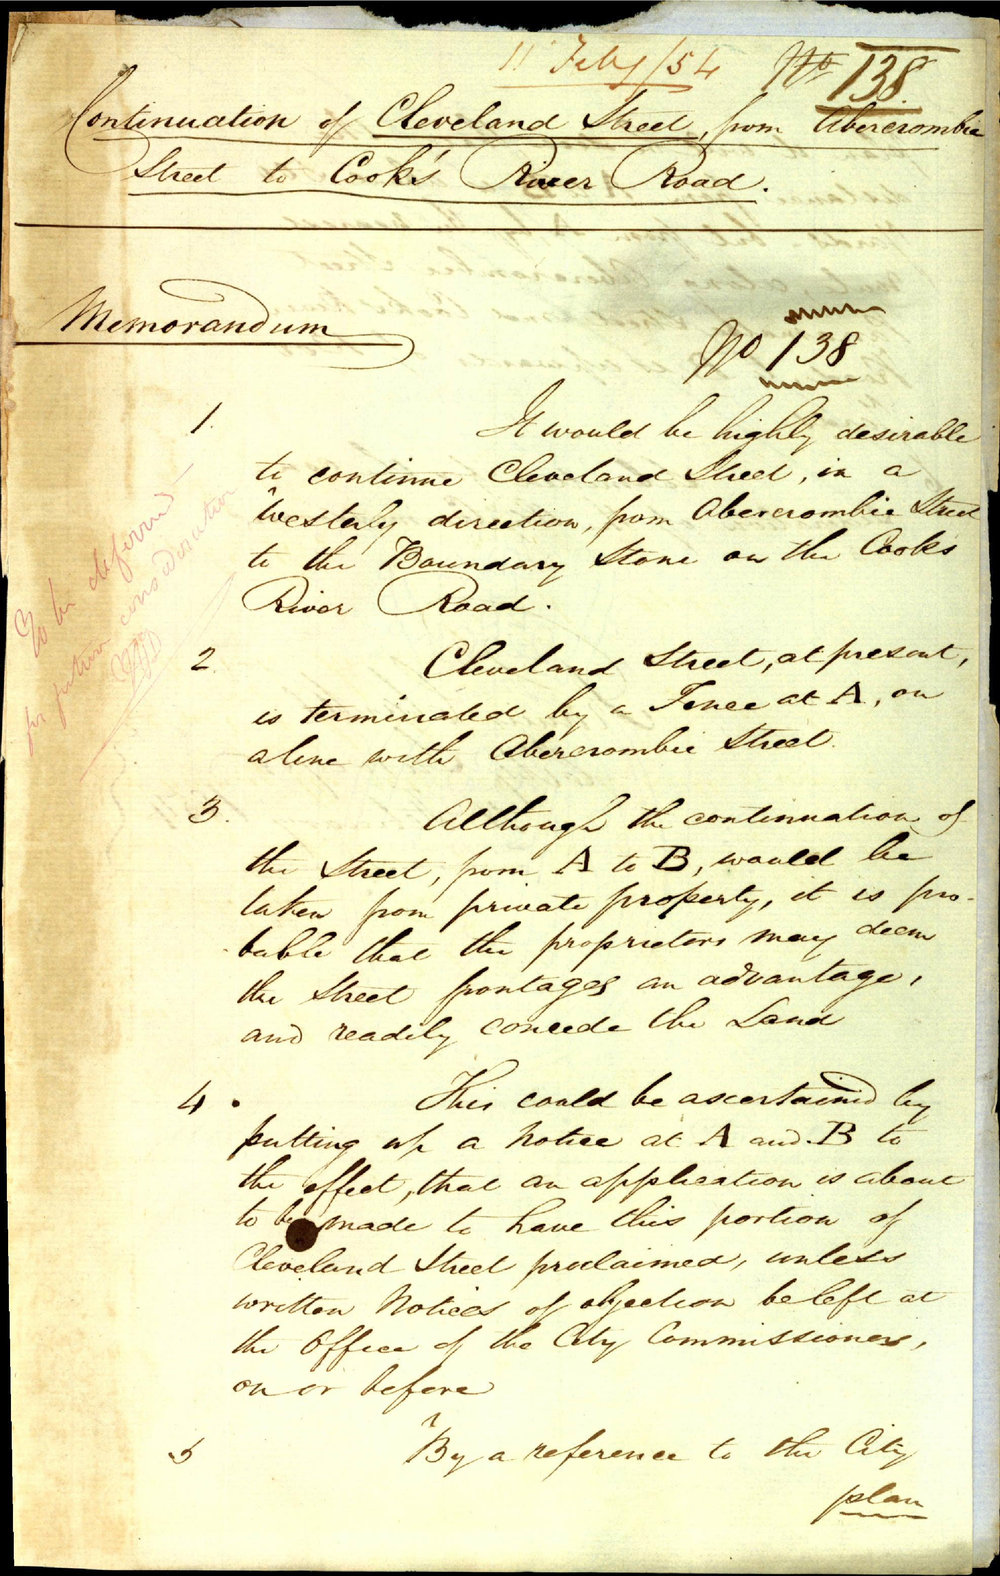 11 Feby /54
No 138
Continuation of Cleveland Street, from Abercrombie
Street to Cook's River Road.
Memorandum
No 138
1. It would be highly desirable
to continue Cleveland Street, in a
Westerly direction, from Abercrombie Street
to the Boundary Stone on the Cooks
River Road.
To be deferred
for future consideration
2 Cleveland Street, at present,
is terminated by a Fence at A, on
a line with Abercrombie Street.
3. Although the continuation of
the Street, from A to B, would be
taken from private property, it is pro-
bable that the proprietors may deem
the Street frontages an advantage,
and readily concede the Land
4. This could be ascertained by
putting up a Notice at A and B to
the effect, that an application is about
to be made to have this portion of
Cleveland Street proclaimed, unless
written Notices of objection be left at
the Office of the City Commissioners,
on or before
5 By a reference to the City
plan